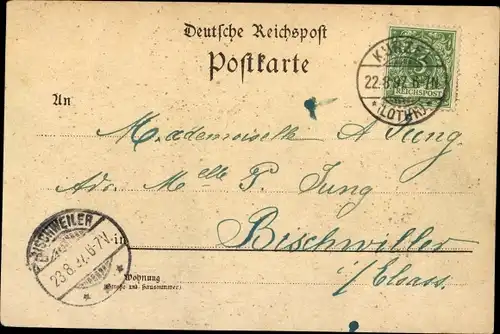 Deutsche Reichspost
Postkarte
5
REICHSPOST
22.8.97. 6-7N.
*(LOTHR)*
An
Mademoiselle A Jung
Adr. Melle P. Jung
in Bischwiller
i/Elsass.
BISCHWEILER
23.8.97. 6-7V.
Wohnung
(Straße und Hausnummer)